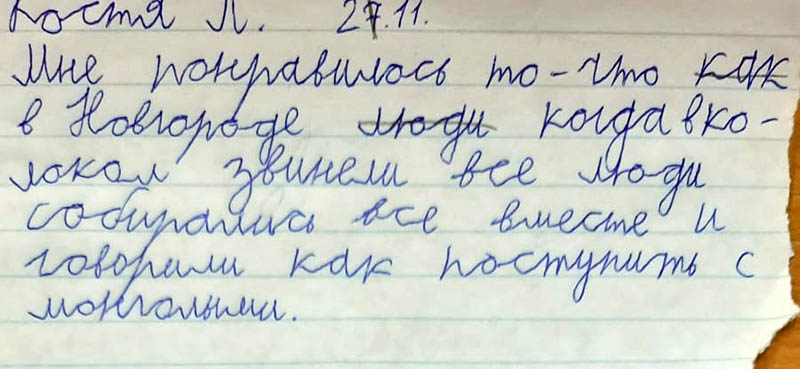 Костя Л. 27.11.
Мне понравилось то-что как
в Новгороде люди когда вко-
локол звинели все люди
собирались все вместе и
говорили как поступить с
монголыми.